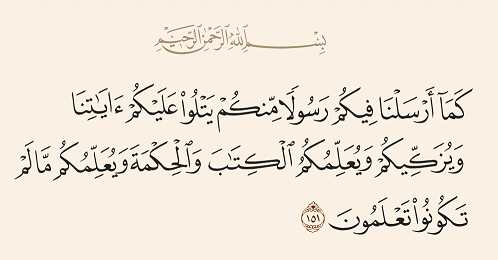 بِسْمِ ٱللَّهِ ٱلرَّحْمَٰنِ ٱلرَّحِيمِ
كَمَآ أَرْسَلْنَا فِيكُمْ رَسُولًا مِّنكُمْ يَتْلُوا۟ عَلَيْكُمْ ءَايَٰتِنَا
وَيُزَكِّيكُمْ وَيُعَلِّمُكُمُ ٱلْكِتَٰبَ وَٱلْحِكْمَةَ وَيُعَلِّمُكُم مَّا لَمْ
تَكُونُوا۟ تَعْلَمُونَ ١٥١